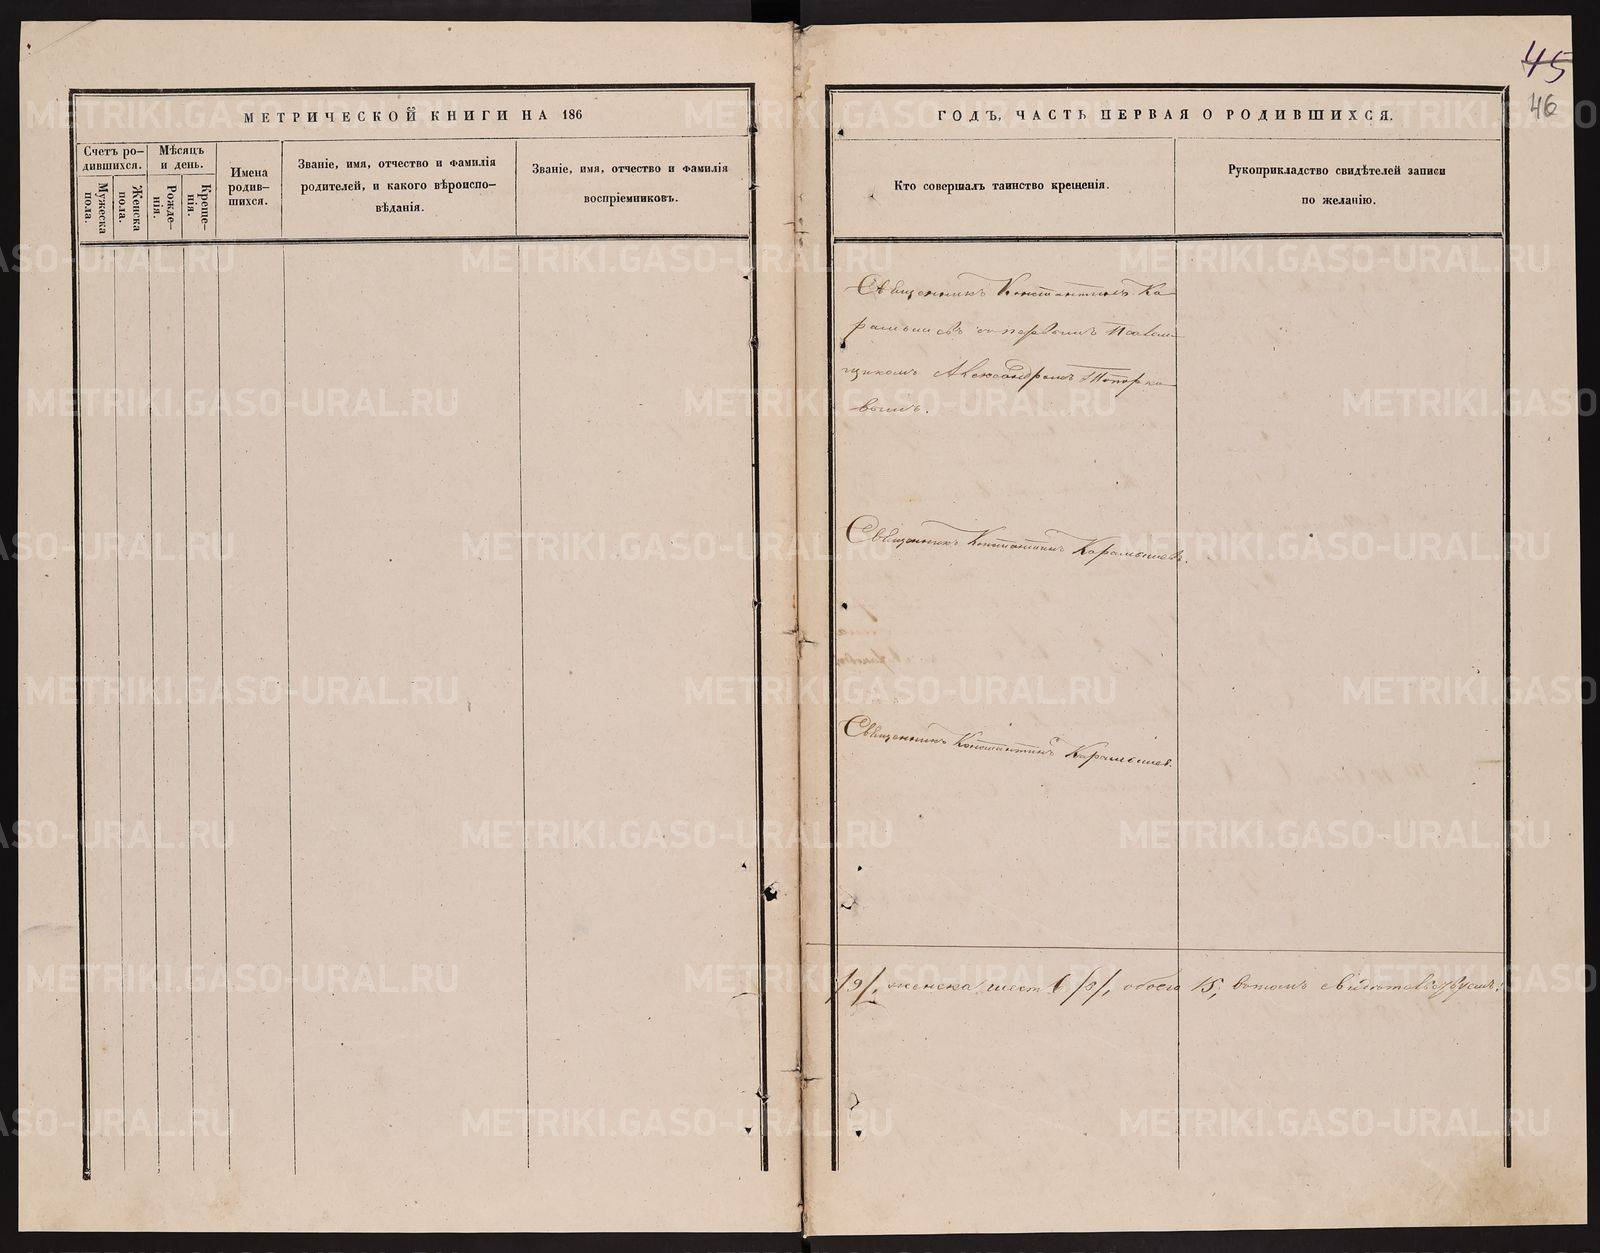 45
46
МЕТРИЧЕСКОЙ КНИГИ НА 186
Счетъ ро-
дившихся.
Мѣсяцъ
и день.
Мужеска
пола.
Женска
пола.
Рожде-
нія.
Креще-
нія.
Имена
родив-
шихся.
Званіе, имя, отчество и фамилія
родителей, и какого вѣроиспо-
вѣданія.
Званіе, имя, отчество и фамилія
воспріемниковъ.
ГОДЪ, ЧАСТЬ ПЕРВАЯ О РОДИВШИХСЯ.
Кто совершалъ таинство крещенія.
Рукоприкладство свидѣтелей записи
по желанію.
Священникъ Константинъ Ка-
рамышевъ съ
Александромъ Топорко-
вымъ.
Священникъ Константинъ Карамышевъ.
Священникъ Константинъ Карамышев.
/9/, женска шест /6/, обоего 15, вътомъ свидѣтельствуемъ:
METRIKI.GASO-URAL.RU